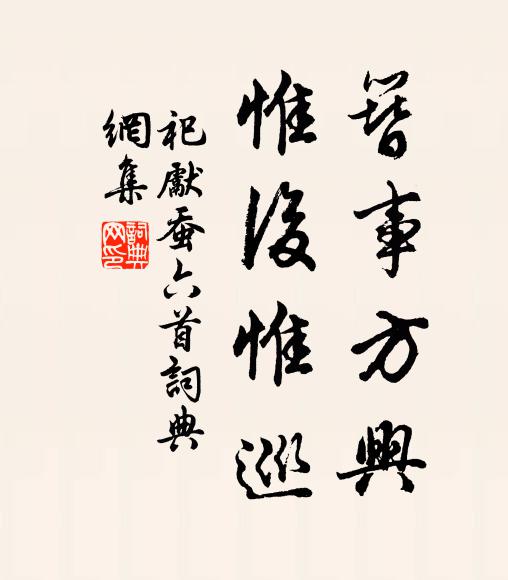 簪事方興
惟後惟巡
祀獻蚕六首詞典
網集
詞典
网印